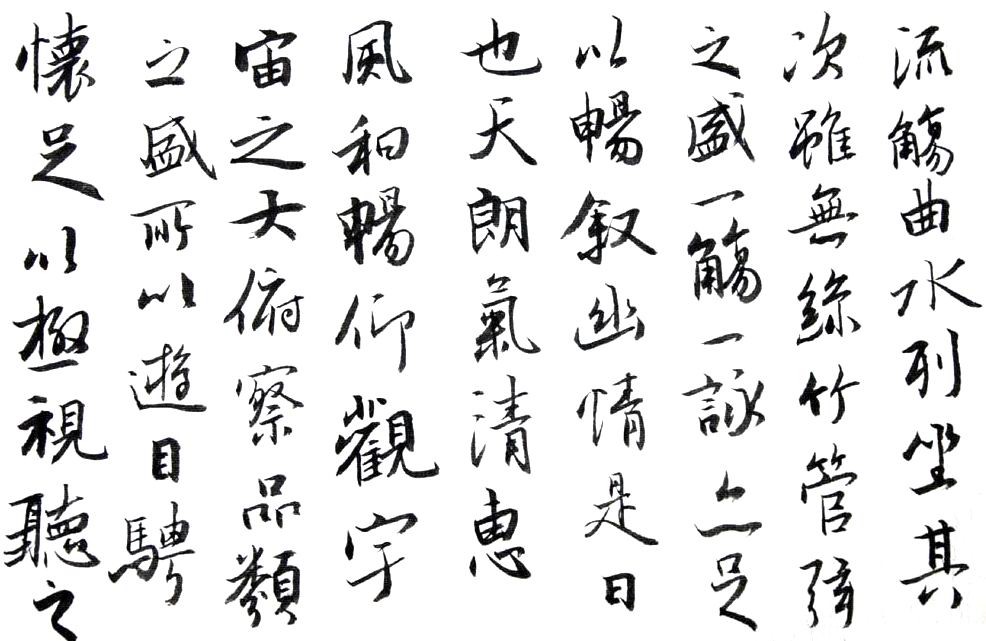 流觴曲水列坐其
次雖無絲竹管弦
之盛一觴一詠亦足
以暢叙幽情是日
也天朗氣清惠
風和暢仰觀宇
宙之大俯察品類
之盛所以遊目騁
懷足以極視聽之